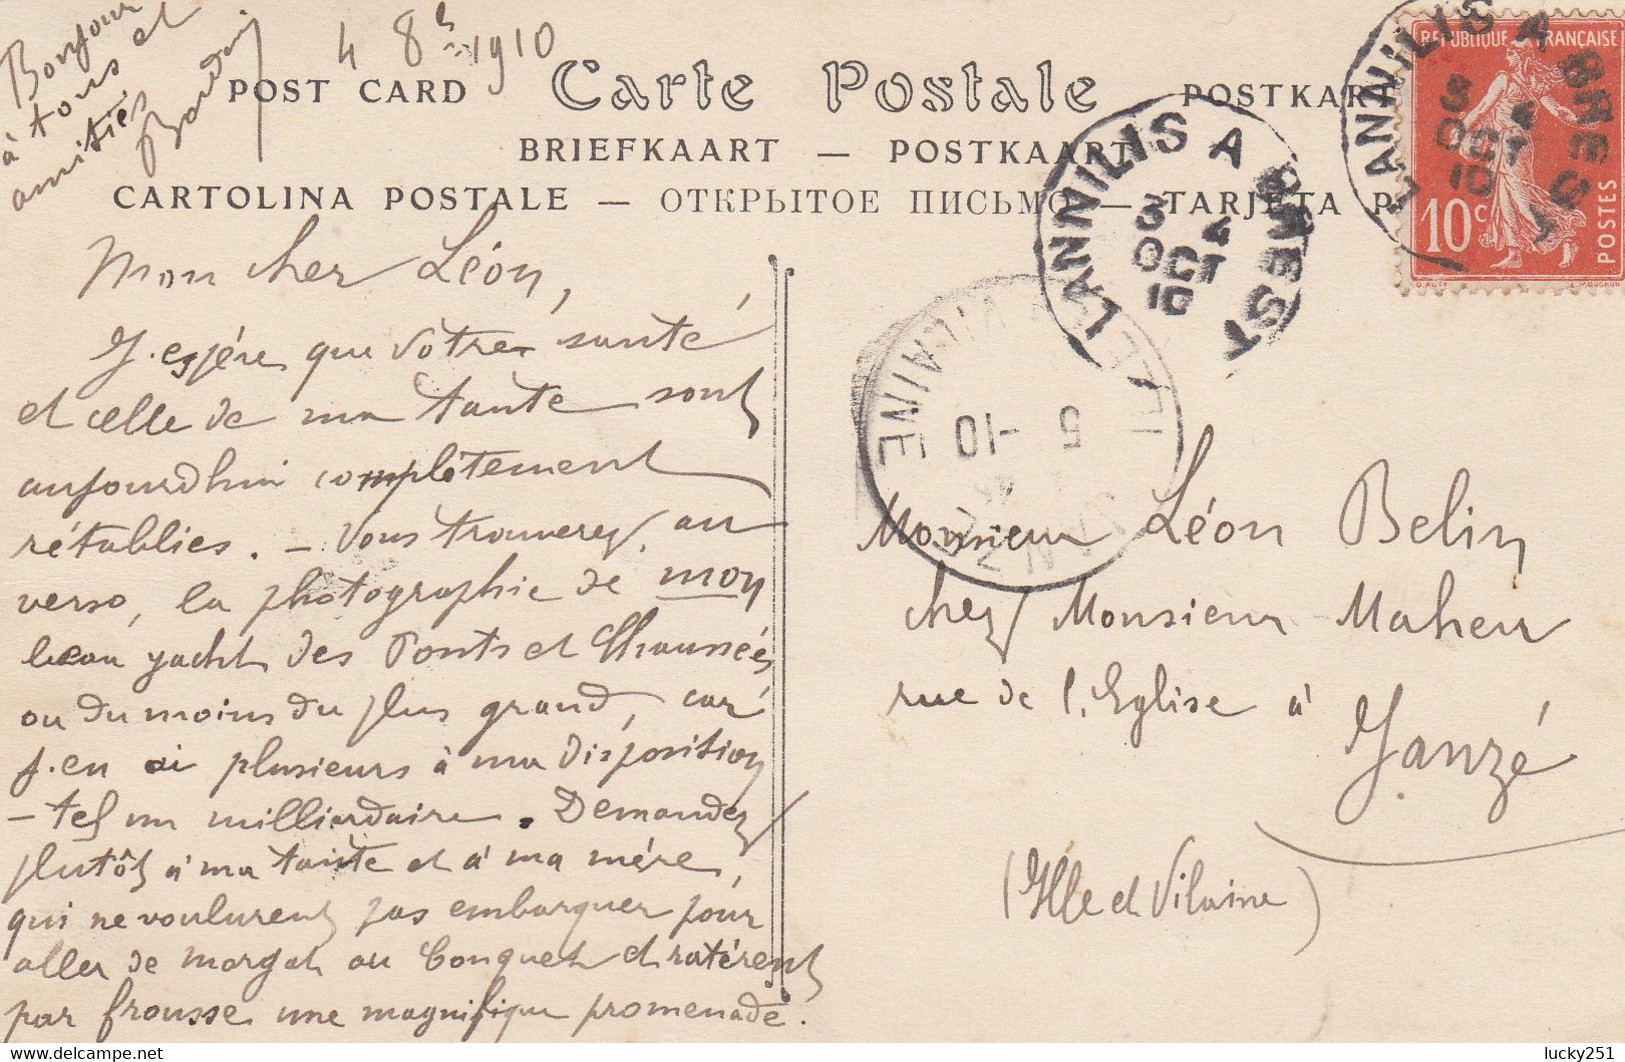 Bonjour
à tous et
amitiés
4 8bre 1910
POST CARD Carte Postale POSTKART
BRIEFKAART — POSTKAART
CARTOLINA POSTALE — ОТКРЫТОЕ ПИСЬМО — TARJETA P
REPUBLIQUE FRANÇAISE
10c POSTES
LANNILIS A BREST
3 4
OCT
10
LANNILIS A BREST
3 4
OCT
10
VILAINE
5 -10
Mon cher Léon,
J'espére que votre santé
et celle de ma tante sont
aujourdhui complètement
rétablies. — Vous trouverez, au
verso, la photographie de mon
beau yacht des Ponts et Chaussées
ou du moins du plus grand, car
j'en ai plusieurs à ma disposition
— tel un milliardaire. Demandez
plutôt à ma tante et à ma mére,
qui ne voulurent pas embarquer pour
aller de Morgat au Conquet et ratérent
par frousse une magnifique promenade.
Monsieur Léon Belin
chez Monsieur Maheu
rue de l'Eglise à
Janzé
(Ille et Vilaine)
lucky251